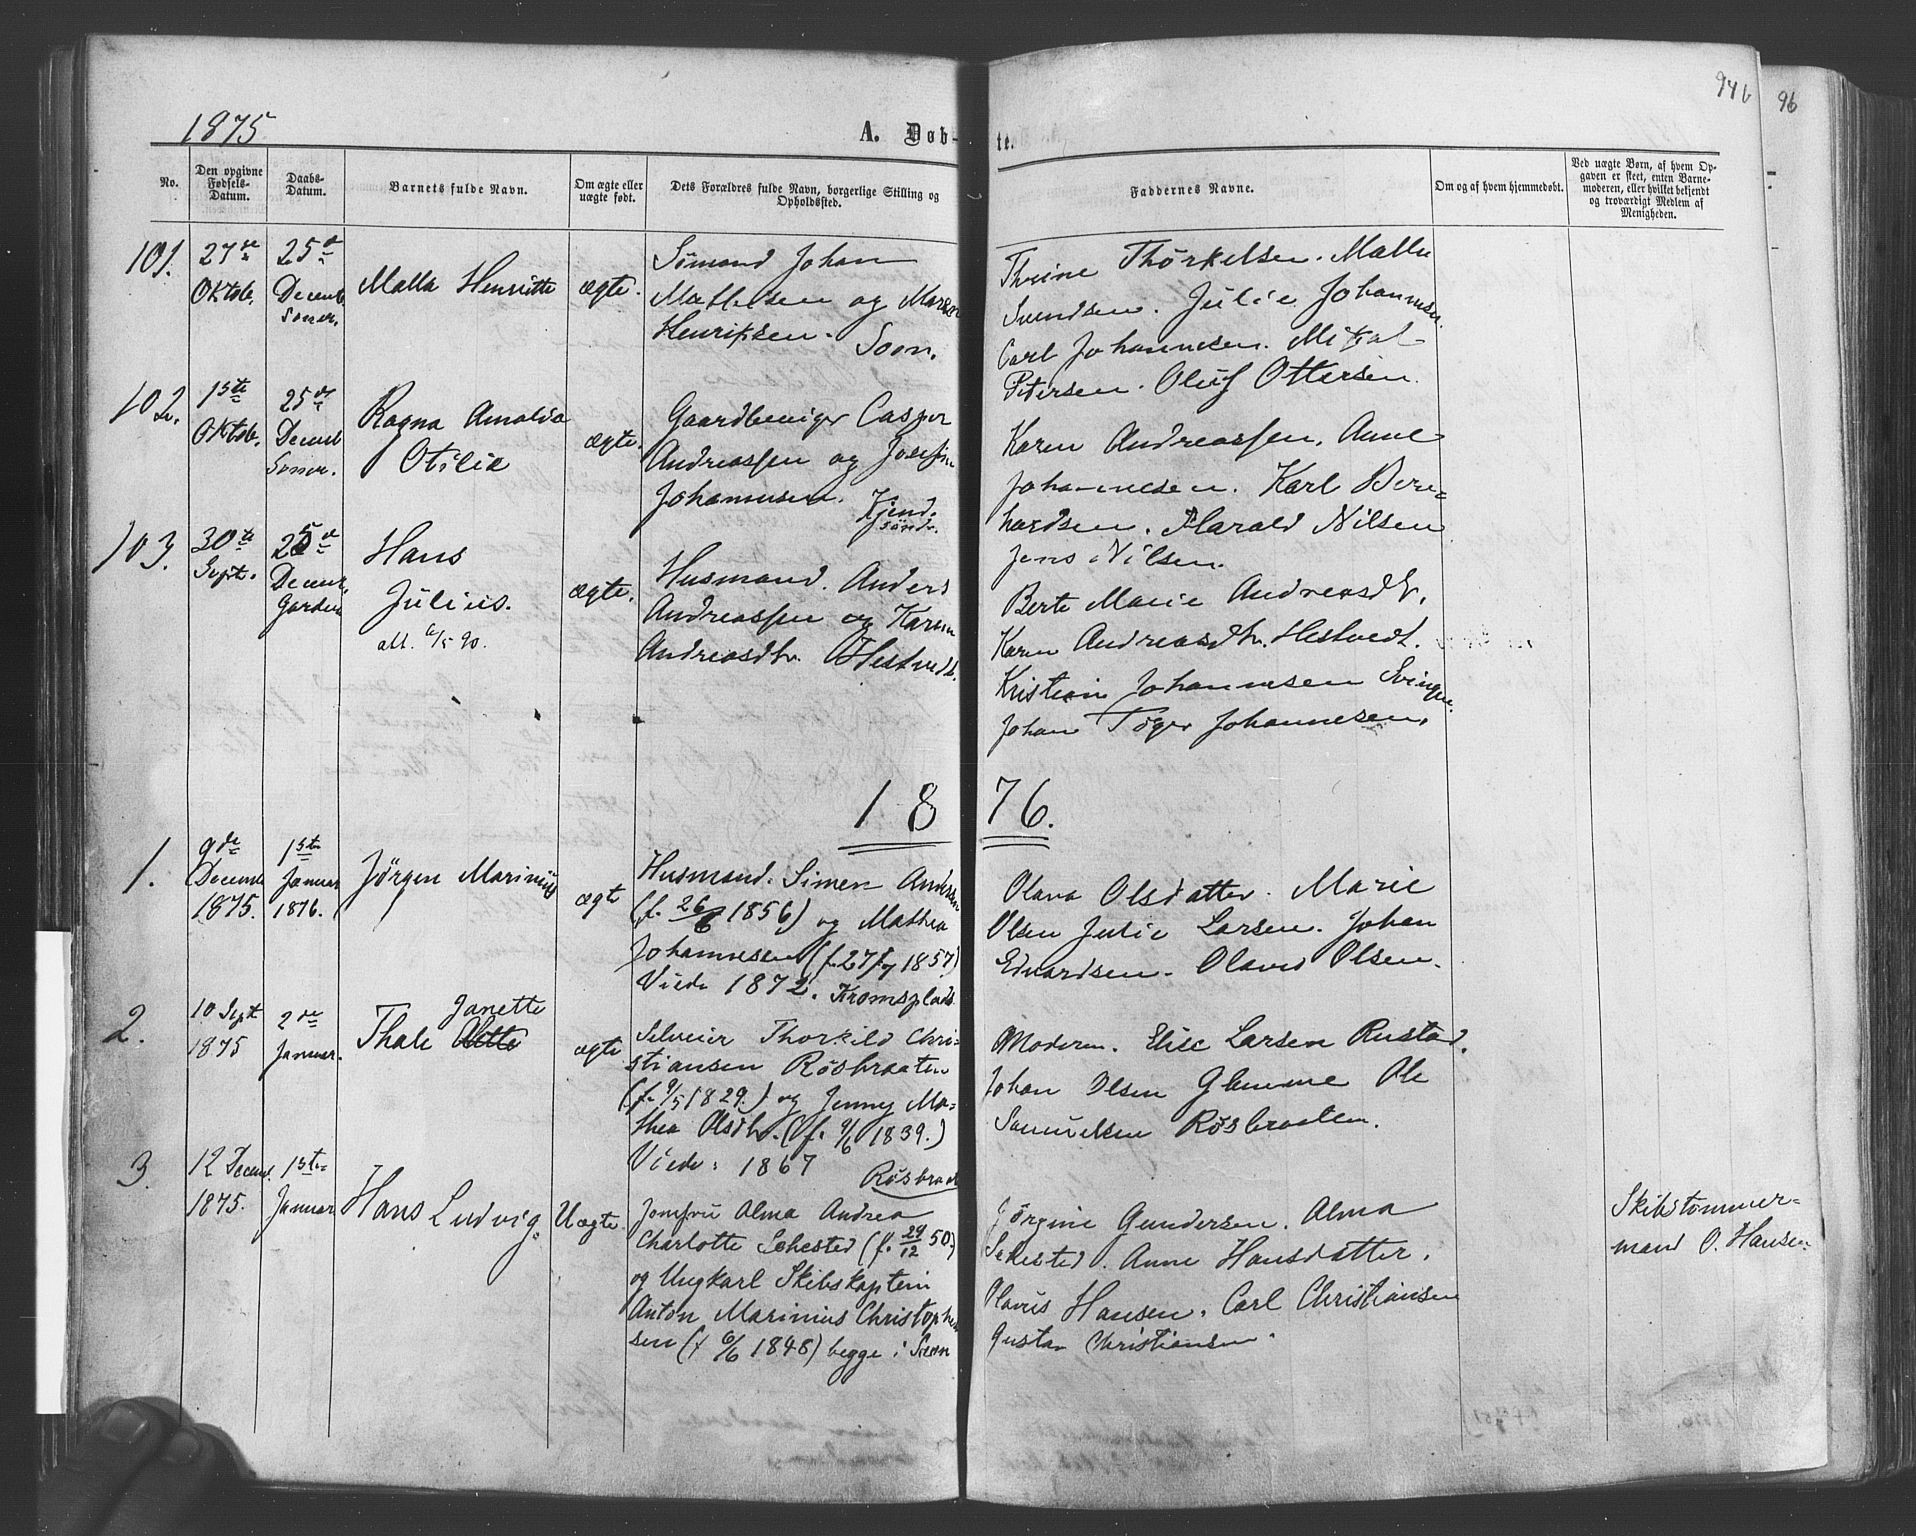 94b
96
1875
A. Døb-
te.
No.
Den opgivne Fødsels-Datum.
Daabs-Datum.
Barnets fulde Navn.
Om ægte eller uægte født.
Dets Forældres fulde Navn, borgerlige Stilling og Opholdssted.
Faddernes Navne.
Om og af hvem hjemmedøbt.
Ved uægte Børn, af hvem Opgaven er skeet, enten Barnemoderen, eller hvilket bekjendt og troværdigt Medlem af Menigheden.
101.
27de
Oktob.
25de
Decemb
Soner.
Malla Henriette
ægte.
Sömand Johan
Mathesen og Maren
Henriksen.
Soon.
Thrine Thorkelsen. Malla
Svendsen. Julie Johannesen.
Carl Johannesen. Mikal
Petersen. Oluf Ottersen.
102.
1ste
Oktob.
25de
Decemb
Soner.
Ragna Amalia
Otilie
ægte.
Gaardbruger Casper
Andreassen og Josefine
Johannesen.
Karen Andreassen. Anne
Johannesen. Karl Bern-
hardsen. Harald Nilsen
Jens Nilsen.
103.
30te
Sept.
25de
Decemr.
Garder
Hans
Julius.
att. 6/5 90.
ægte.
Husmand. Anders
Andreassen og Karen
Andreasdtr. Hestvedt.
Berte Marie Andreasdtr.
Karen Andreasdtr. Hestvedt.
Kristian Johannesen Svingen.
Johan Töger Johannesen.
1876.
1.
9de
Decemb
1875.
1ste
Januar
1876.
Jørgen Marinius
ægte
Husmand. Simen Andersen
(f. 26/6 1856) og Mathea
Johannesen (f. 27/7 1857)
Viede 1872. Kromsplads
Olava Olsdatter. Marie
Olsen Julie Larsen. Johan
Edvardsen. Olaves Olsen.
2.
10 Sept
1875
2de
Januar.
Janette
Thale
ægte
Selveier Thorkild Chri-
stiansen Røsbraaten
(f. 9/5 1829.) og Jenny Ma-
thea Olsdtr. (f. 9/6 1839.)
Viede: 1867
Røsbraat
Moderen. Elise Larsen Rustad.
Johan Olsen Glemme Ole
Samuelsen Røsbraaten.
3.
12 Decemb.
1875.
1ste
Januar
Hans Ludvig.
Uægte.
Jomfru Alma Andrea
Charlotte Sehested (f. 29/12 50.)
og Ungkarl Skibskaptein
Anton Marinius Christophen
sen (f 6/6 1848) begge i Soon
Jörgine Gundersen. Alma
Sehested. Anne Hansdatter.
Olavus Hansen. Carl Christiansen
Gustav Christiansen.
Skibstømmer-
mand O. Hansen